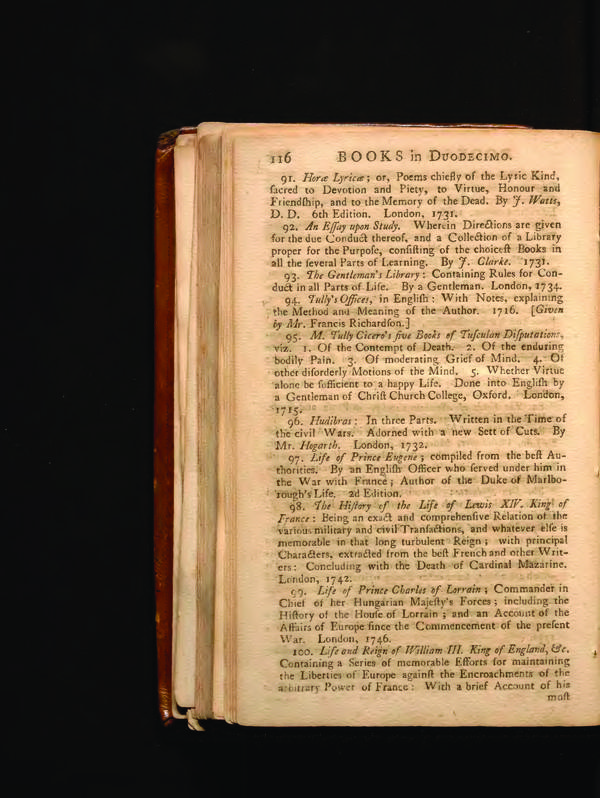 116 BOOKS in DUODECIMO.
91. Horæ Lyricæ; or, Poems chiefly of the Lyric Kind,
ſacred to Devotion and Piety, to Virtue, Honour and
Friendſhip, and to the Memory of the Dead. By J. Watts,
D. D. 6th Edition. London, 1731.
92. An Eſſay upon Study. Wherein Directions are given
for the due Conduct thereof, and a Collection of a Library
proper for the Purpoſe, conſiſting of the choiceſt Books in
all the ſeveral Parts of Learning. By J. Clarke. 1731.
93. The Gentleman's Library: Containing Rules for Con-
duct in all Parts of Life. By a Gentleman. London, 1734.
94. Tully's Offices, in Engliſh: With Notes, explaining
the Method and Meaning of the Author. 1716. [Given
by Mr. Francis Richardſon.]
95. M. Tully Cicero's five Books of Tuſculan Diſputations,
viz. 1. Of the Contempt of Death. 2. Of the enduring
bodily Pain. 3. Of moderating Grief of Mind. 4. Of
other diſorderly Motions of the Mind. 5. Whether Virtue
alone be ſufficient to a happy Life. Done into Engliſh by
a Gentleman of Chriſt Church College, Oxford. London,
1715.
96. Hudibras: In three Parts. Written in the Time of
the civil Wars. Adorned with a new Sett of Cuts. By
Mr. Hogarth. London, 1732.
97. Life of Prince Eugene; compiled from the beſt Au-
thorities. By an Engliſh Officer who ſerved under him in
the War with France; Author of the Duke of Marlbo-
rough's Life. 2d Edition.
98. The Hiſtory of the Life of Lewis XIV. King of
France: Being an exact and comprehenſive Relation of the
various military and civil Tranſactions, and whatever elſe is
memorable in that long turbulent Reign; with principal
Characters, extracted from the beſt French and other Writ-
ers: Concluding with the Death of Cardinal Mazarine.
London, 1742.
99. Life of Prince Charles of Lorrain; Commander in
Chief of her Hungarian Majeſty's Forces; including the
Hiſtory of the Houſe of Lorrain; and an Account of the
Affairs of Europe ſince the Commencement of the preſent
War. London, 1746.
100. Life and Reign of William III. King of England, &c.
Containing a Series of memorable Efforts for maintaining
the Liberties of Europe againſt the Encroachments of the
arbitrary Power of France: With a brief Account of his
moſt